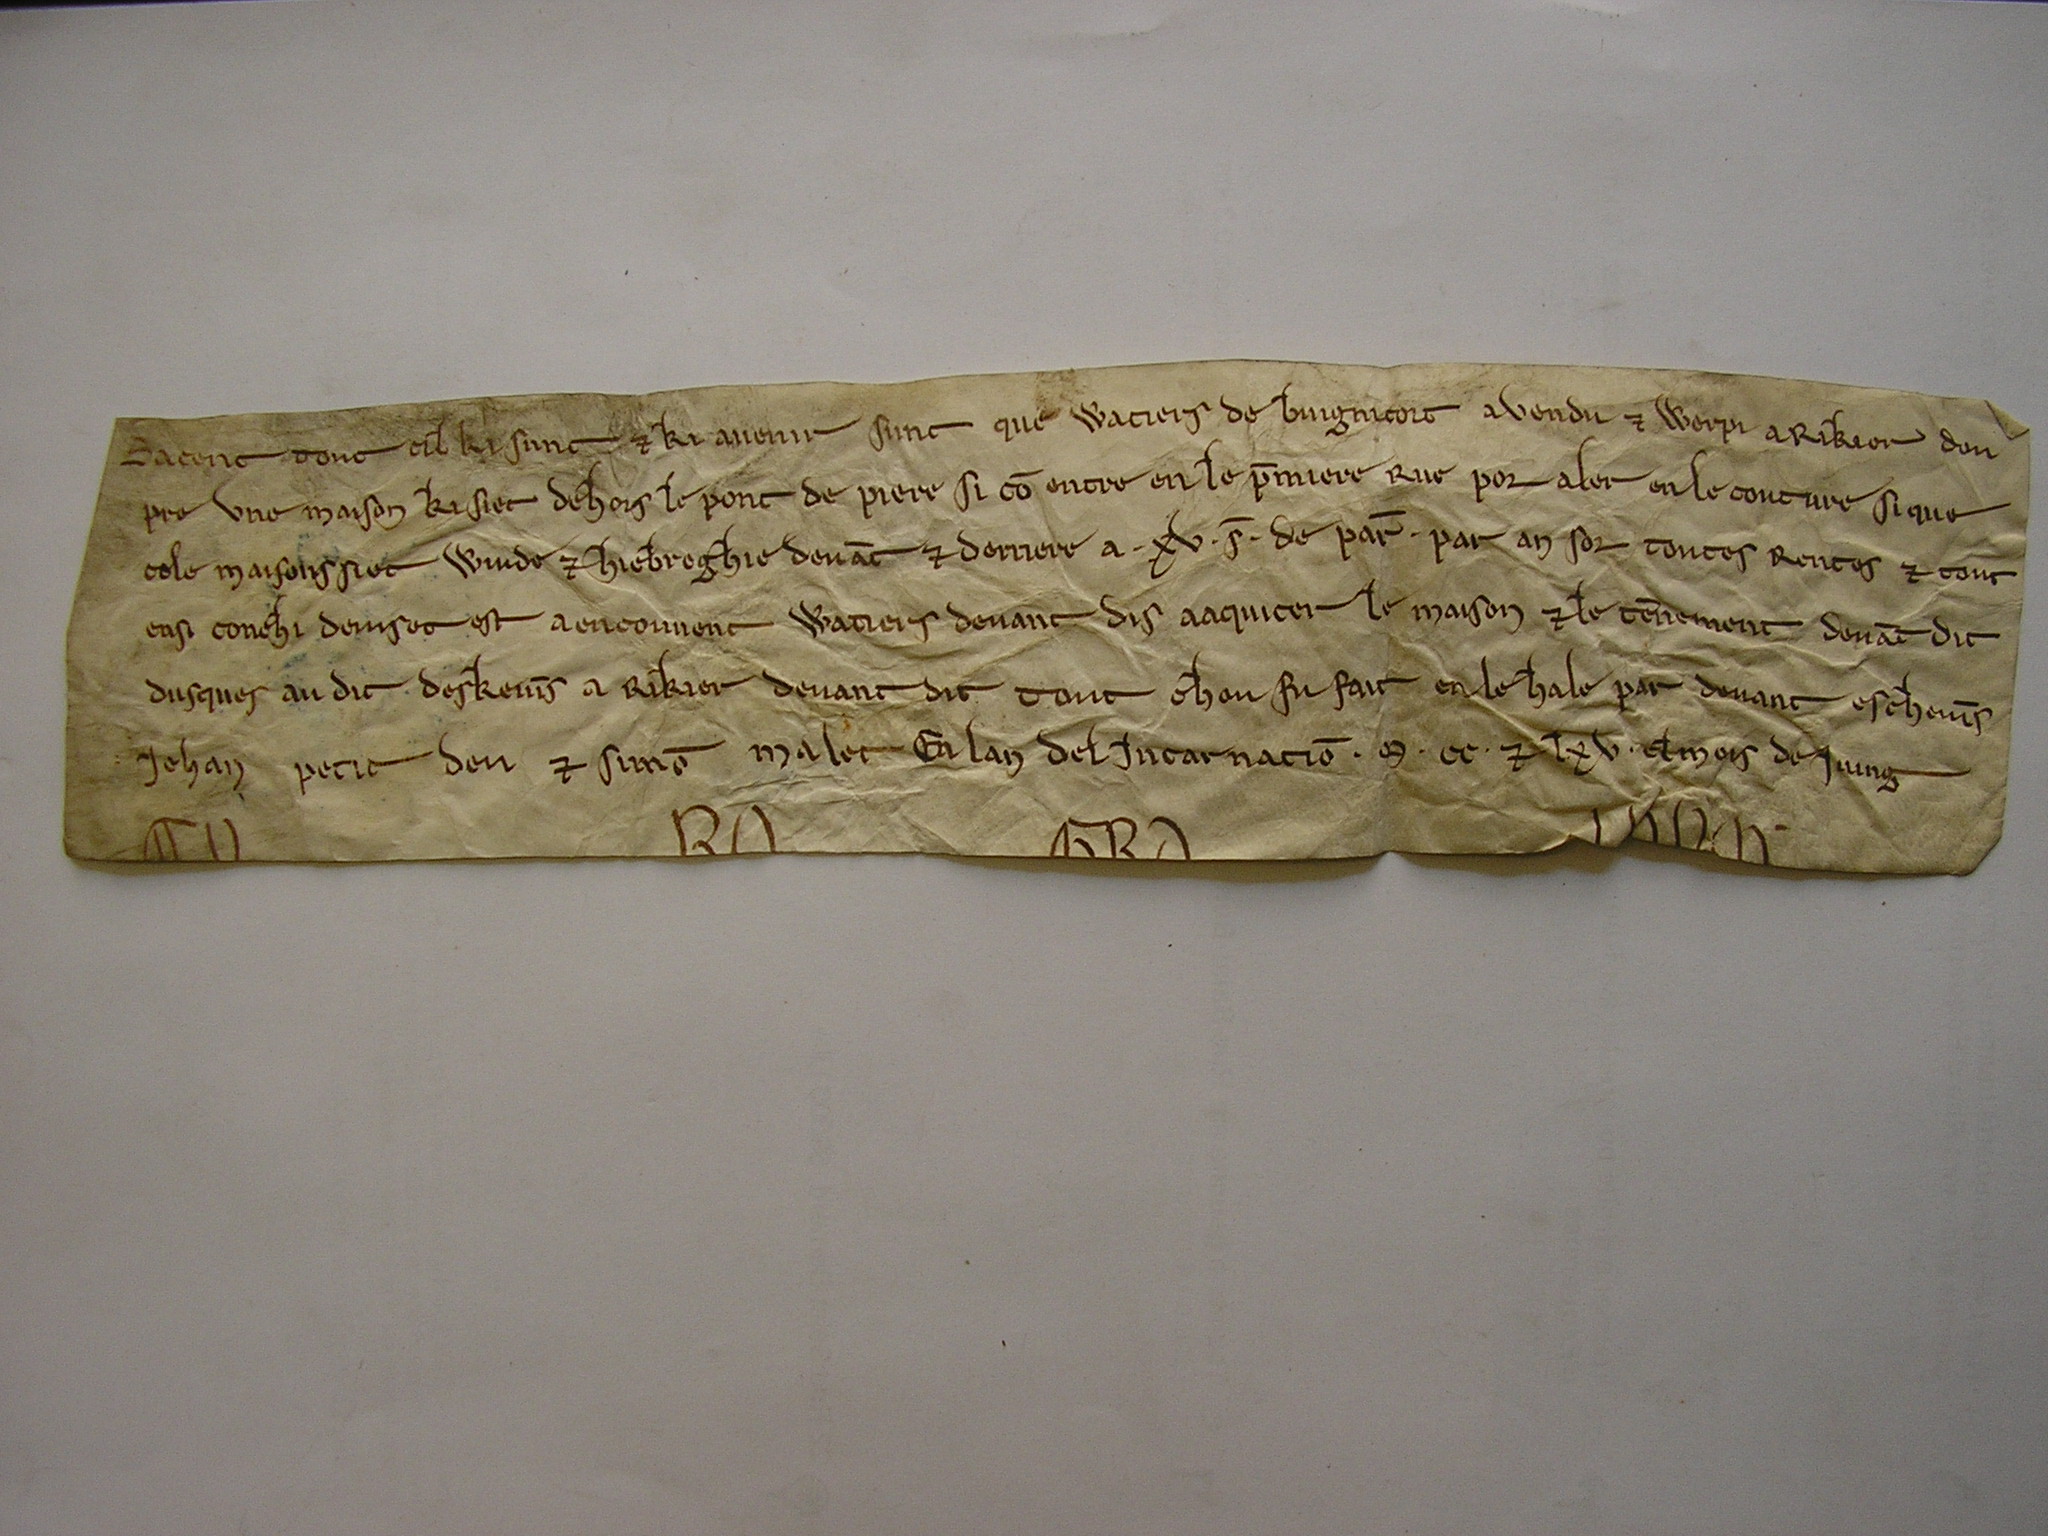 Sacent tout cil ki sunt ⁊ ki auenir sunt que Watiers de buignicort a vendu ⁊ Werpi a Rikier dou
pre vne maison ki siet dehors le pont de piere si cō entre en le p̄miere Rue por aler en le couture si que
cele maisons siet Wiude ⁊ hiebreghie deuāt ⁊ derriere a · xv · s̄ · de par̄ · par an sor toutes Rentes ⁊ tout
ensi con chi deuiset est a en couuent Watiers deuant dis a aquiter le maison ⁊ le ten̄ement deuāt dit
dusques au dit deskeuīs a Rikier deuant dit tout chou fu fait en le hale par deuant escheuīs
Jehan petit deu ⁊ simō malet En lan del Incarnatiō · M · cc · ⁊ lxv · el mois de Juing